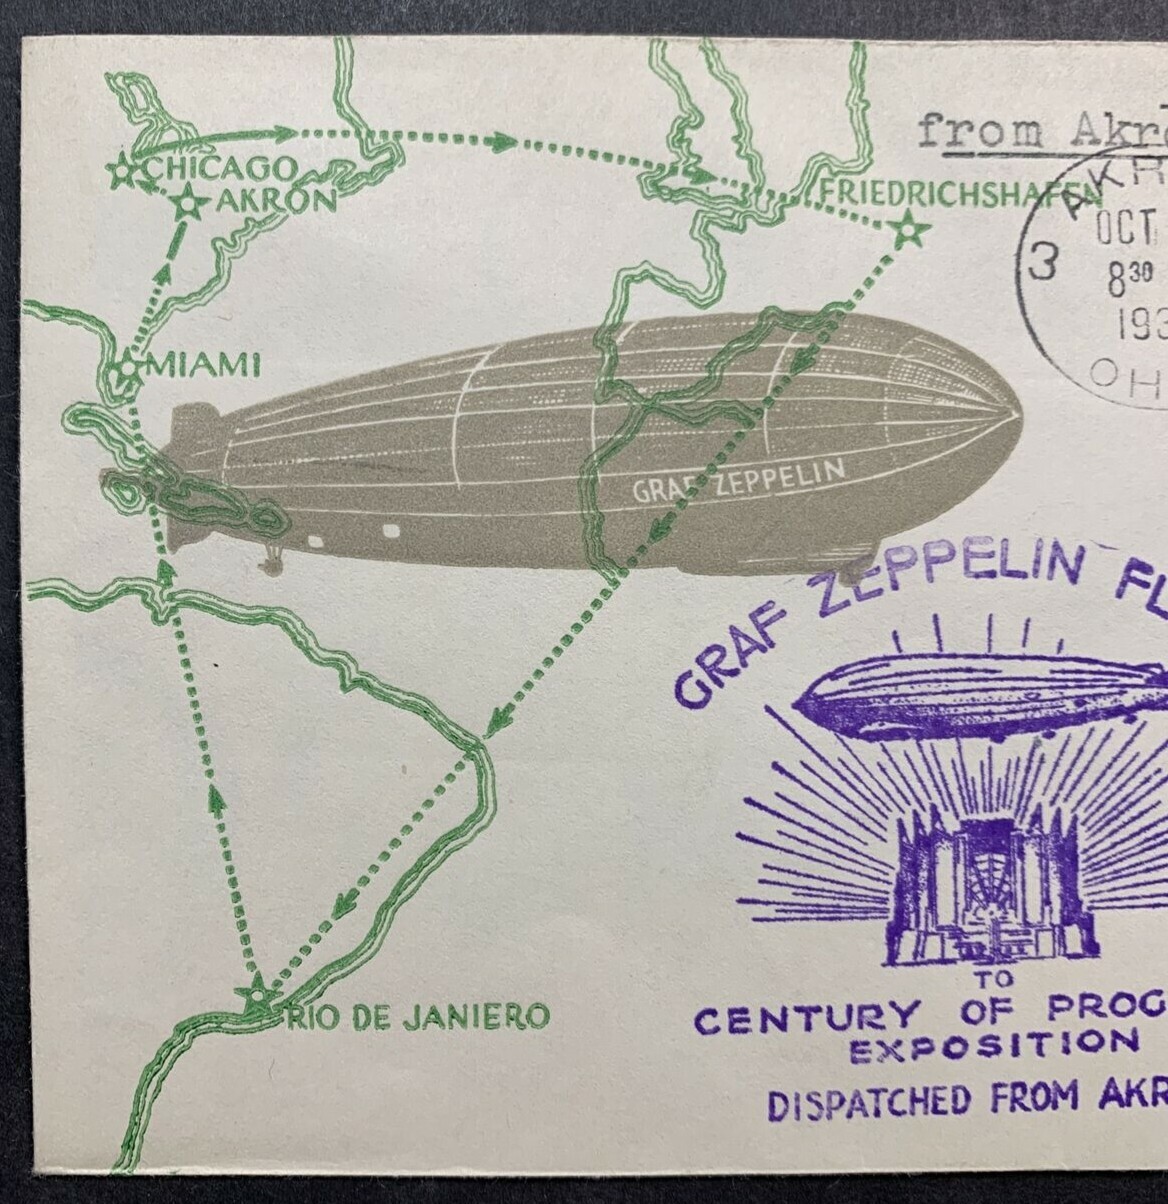 from Akr
CHICAGO
AKRON
FRIEDRICHSHAFEN
AKR
OCT
3
8 30
193
OH
MIAMI
GRAF ZEPPELIN
GRAF ZEPPELIN FL
TO
CENTURY OF PROG
EXPOSITION
RIO DE JANIERO
DISPATCHED FROM AKR